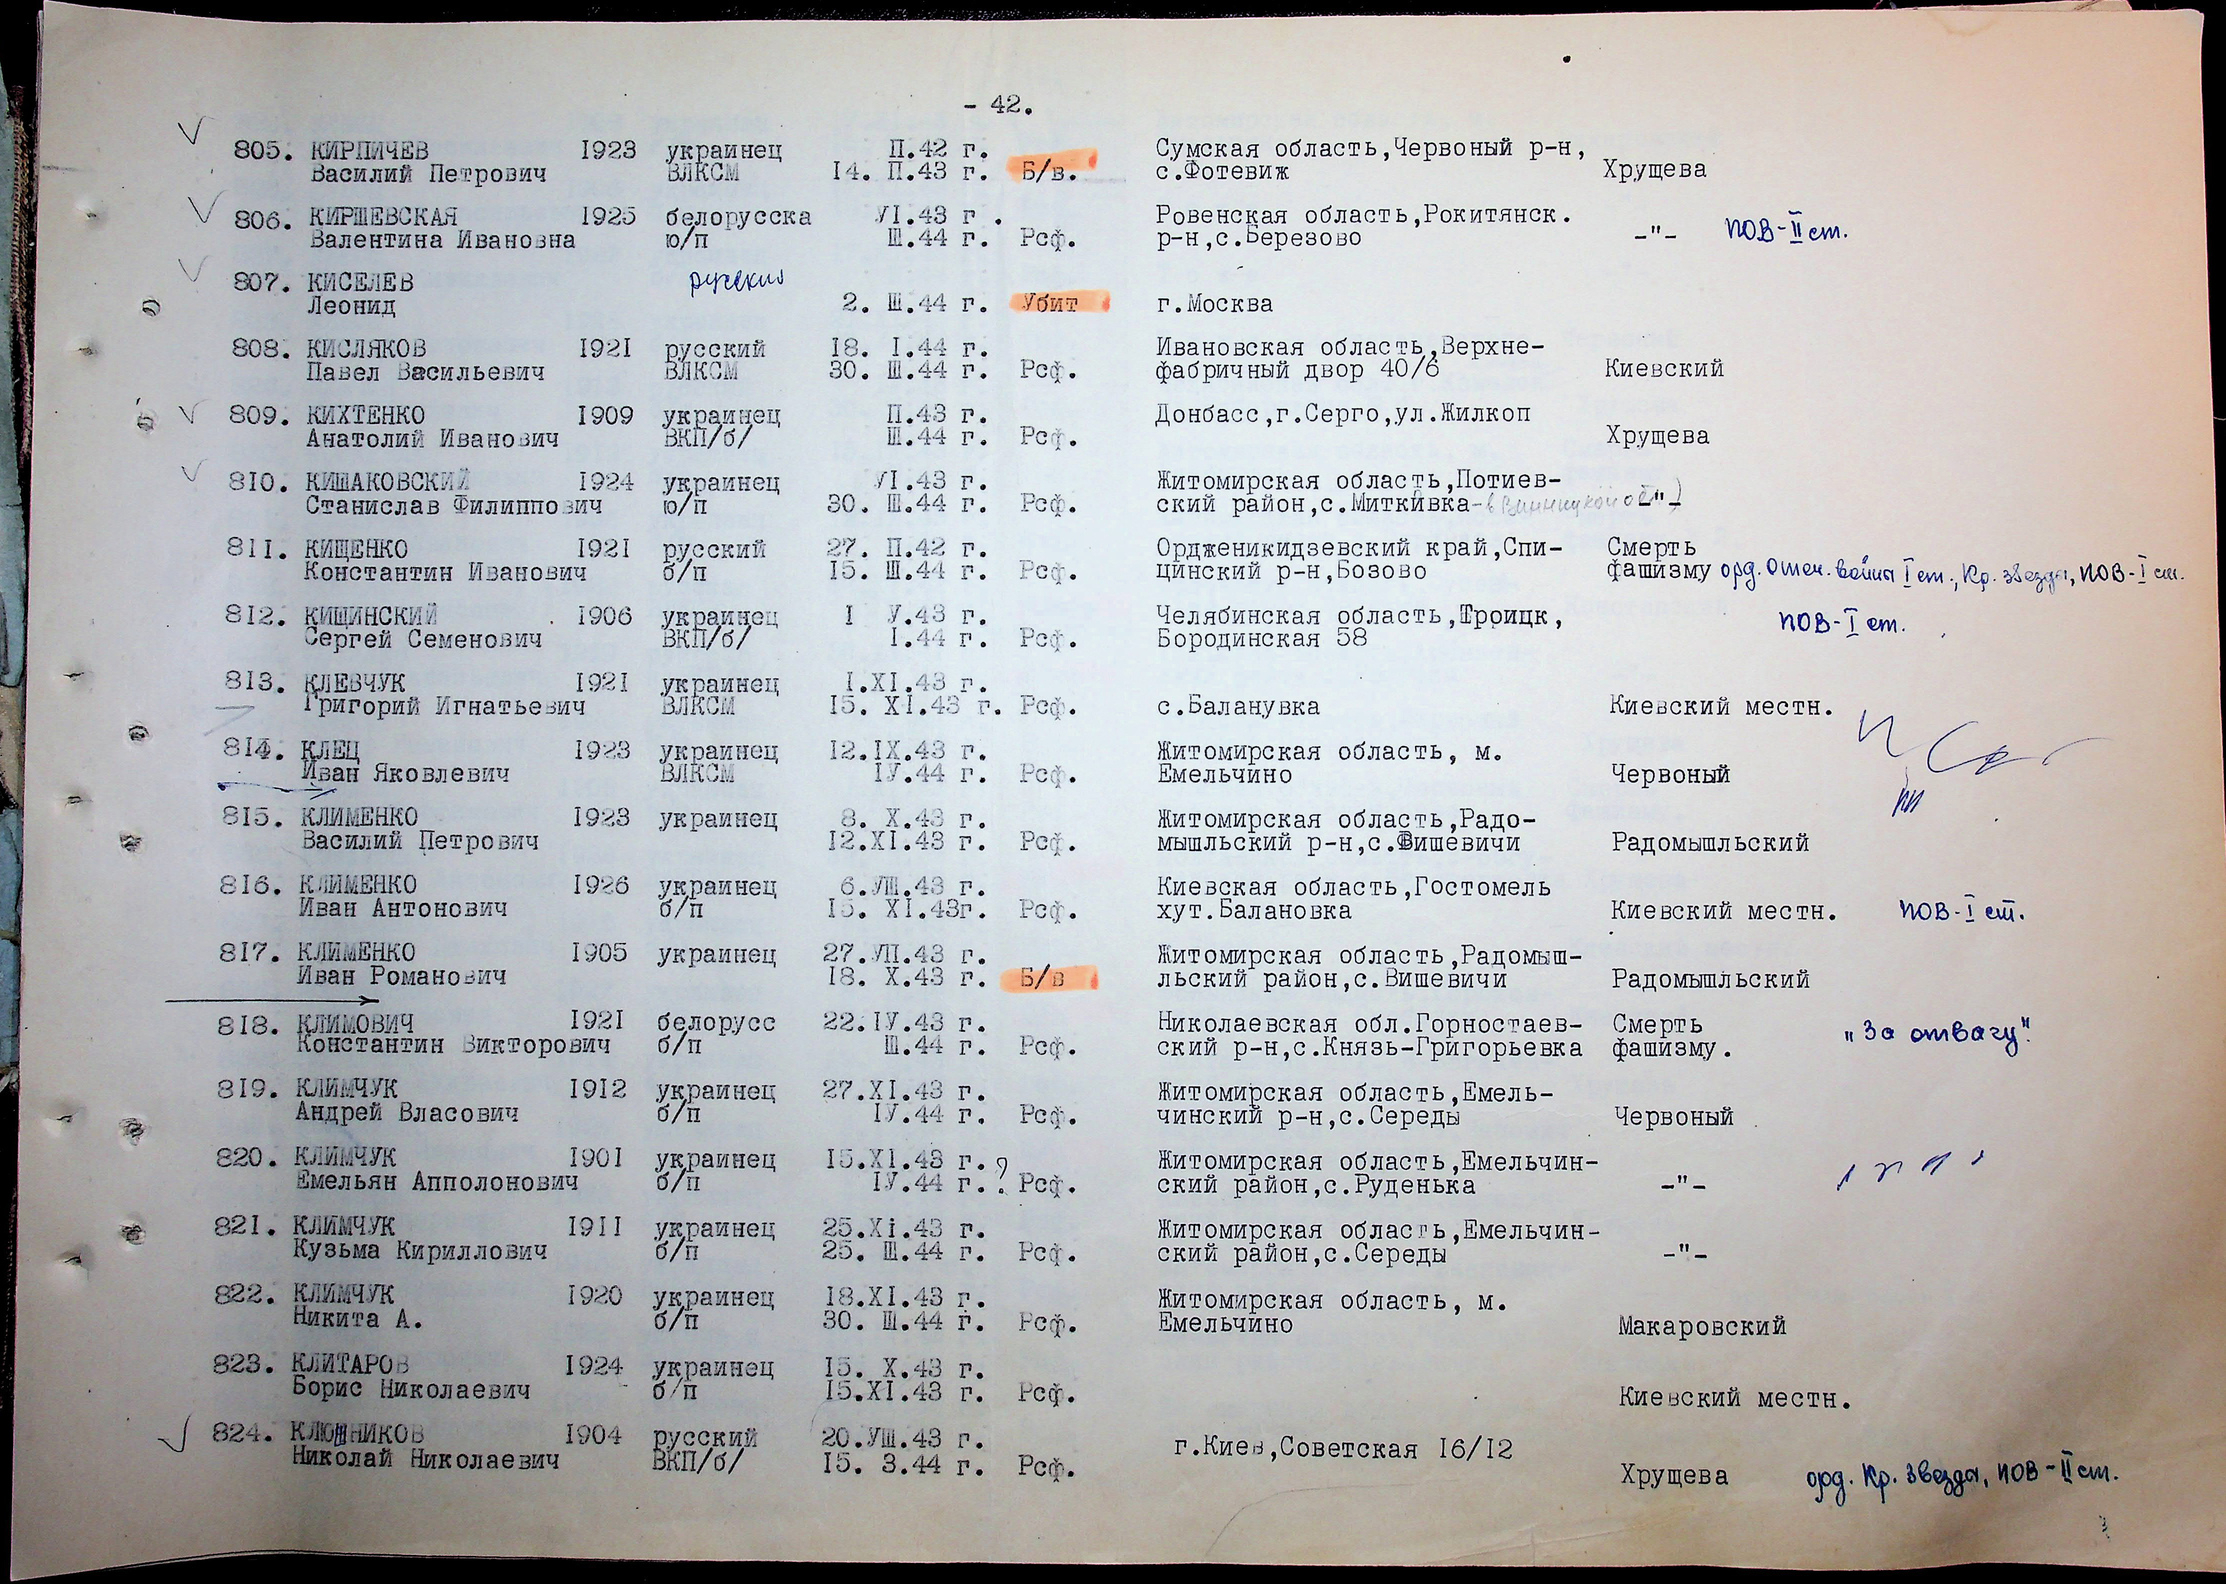 - 42.
805. КИРПИЧЕВ 1923 украинец П.42 г. Сумская область,Червоный р-н,
Василий Петрович ВЛКСМ 14. П.43 г. Б/в. с.Фотевиж Хрущева
806. КИРШЕВСКАЯ 1925 белорусска УI.43 г. Ровенская область,Рокитянск.
Валентина Ивановна ю/п Ш.44 г. Рсф. р-н,с.Березово -"- ПОВ-II ст.
807. КИСЕЛЕВ русский
Леонид 2. Ш.44 г. Убит г.Москва
808. КИСЛЯКОВ 1921 русский 18. I.44 г. Ивановская область,Верхне-
Павел Васильевич ВЛКСМ 30. Ш.44 г. Рсф. фабричный двор 40/6 Киевский
809. КИХТЕНКО 1909 украинец П.43 г. Донбасс,г.Серго,ул.Жилкоп
Анатолий Иванович ВКП/б/ Ш.44 г. Рсф. Хрущева
810. КИШАКОВСКИЙ 1924 украинец УI.43 г. Житомирская область,Потиев-
Станислав Филиппович ю/п 30. Ш.44 г. Рсф. ский район,с.Миткивка -в Винницкой об.) -"-
811. КИЩЕНКО 1921 русский 27. П.42 г. Орджоникидзевский край,Спи- Смерть
Константин Иванович б/п 15. Ш.44 г. Рсф. цинский р-н,Бозово фашизму орд. Отеч. война I ст., Кр. звезда, ПОВ-I ст.
812. КИЩИНСКИЙ 1906 украинец I У.43 г. Челябинская область,Троицк, ПОВ-I ст.
Сергей Семенович ВКП/б/ I.44 г. Рсф. Бородинская 58
813. КЛЕВЧУК 1921 украинец I.XI.43 г.
Григорий Игнатьевич ВЛКСМ 15. XI.43 г. Рсф. с.Баланувка Киевский местн.
814. КЛЕЦ 1923 украинец 12.IX.43 г. Житомирская область, м.
Иван Яковлевич ВЛКСМ IУ.44 г. Рсф. Емельчино Червоный
815. КЛИМЕНКО 1923 украинец 8. X.43 г. Житомирская область,Радо-
Василий Петрович 12.XI.43 г. Рсф. мышльский р-н,с.Вишевичи Радомышльский
816. КЛИМЕНКО 1926 украинец 6.УШ.43 г. Киевская область,Гостомель
Иван Антонович б/п 15. XI.43г. Рсф. хут.Балановка Киевский местн. ПОВ-I ст.
817. КЛИМЕНКО 1905 украинец 27.УП.43 г. Житомирская область,Радомыш-
Иван Романович 18. X.43 г. Б/в льский район,с.Вишевичи Радомышльский
818. КЛИМОВИЧ 1921 белорусс 22.IУ.43 г. Николаевская обл.Горностаев- Смерть
Константин Викторович б/п Ш.44 г. Рсф. ский р-н,с.Князь-Григорьевка фашизму. "За отвагу".
819. КЛИМЧУК 1912 украинец 27.XI.43 г. Житомирская область,Емель-
Андрей Власович б/п IУ.44 г. Рсф. чинский р-н,с.Середы Червоный
820. КЛИМЧУК 1901 украинец 15.XI.43 г. Житомирская область,Емельчин-
Емельян Апполонович б/п IУ.44 г. ? Рсф. ский район,с.Руденька -"-
821. КЛИМЧУК 1911 украинец 25.Xi.43 г. Житомирская область,Емельчин-
Кузьма Кириллович б/п 25. Ш.44 г. Рсф. ский район,с.Середы -"-
822. КЛИМЧУК 1920 украинец 18.XI.43 г. Житомирская область, м.
Никита А. б/п 30. Ш.44 г. Рсф. Емельчино Макаровский
823. КЛИТАРОВ 1924 украинец 15. X.43 г.
Борис Николаевич б/п 15.XI.43 г. Рсф. Киевский местн.
824. КЛЮШНИКОВ 1904 русский 20.УШ.43 г. г.Киев,Советская 16/12
Николай Николаевич ВКП/б/ 15. 3.44 г. Рсф. Хрущева орд. Кр. Звезда, ПОВ-II ст.